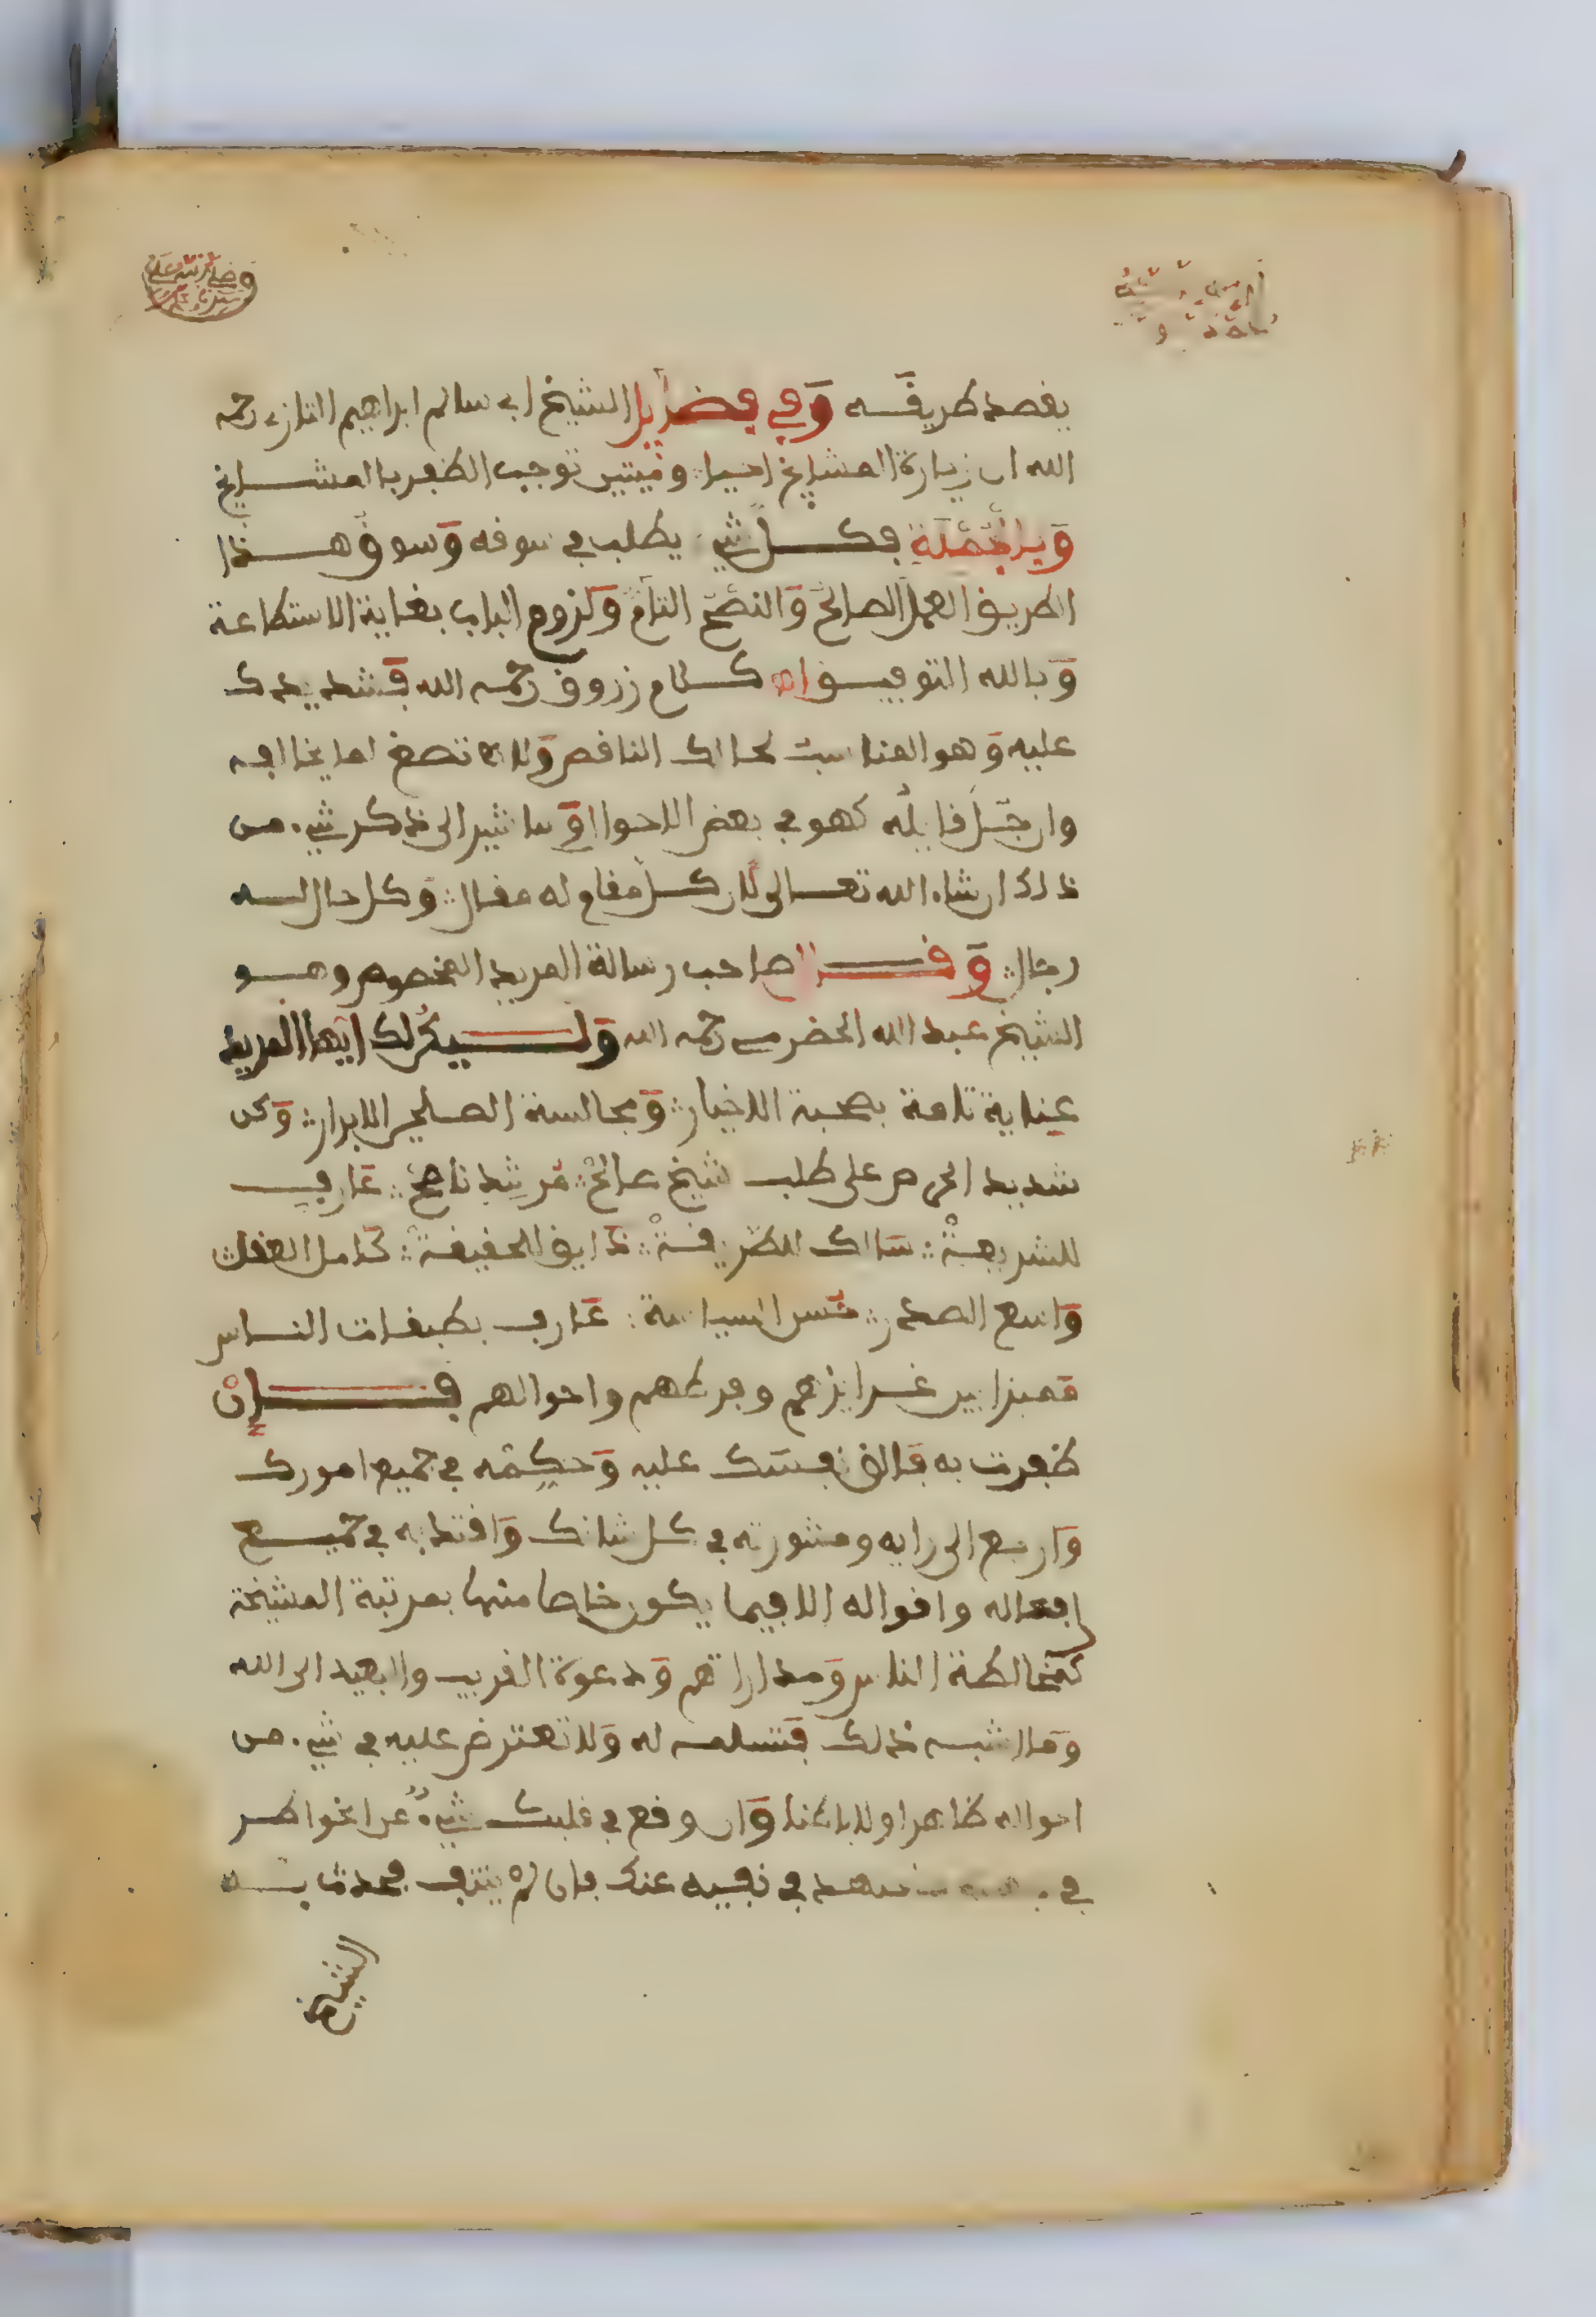 يقصد طريقه وفي فضايل الشيخ ابي سالم ابراهيم التازي رحمه
الله ان زيارة المشايخ احياء وميتين توجب الظفر بالمشايخ
وبالجملة فكل شيء يطلب في سوقه وسوق هذا
الطريق العمل الصالح والنصح التام ولزوم الباب بغاية الاستطاعة
وبالله التوفيق اه كلام زروق رحمه الله فشد يدك
عليه وهو المناسب لحالك الناقص ولا تصغ لما يخالفه
وان جل قايله فهو في بعض الاحوال وسا نشير الى ذكر شيء من
ذلك ان شاء الله تعالى لان كل مقام له مقال وكل حال له
رجال وقال صاحب رسالة المريد المخصوص وهو
الشيخ عبد الله الحضرمي رحمه الله وليكن لك ايها المريد
عناية تامة بصحبة الاخيار ومجالسة الصلحين الابرار وكن
شديد الحرص على طلب شيخ صالح مرشد ناصح عارف
للشريعة سالك للطريقة ذايق للحقيقة كامل العقل
واسع الصدر حسن السياسة عارف بطبقات الناس
مميزا بين غرايزهم وفطرهم واحوالهم فإن
ظفرت به فالق نفسك عليه وحكمه في جميع امورك
وارجع الى رايه ومشورته في كل شانك واقتد به في جميع
افعاله واقواله الا فيما يكون خاصا منها بمرتبة المشيخة
كمخالطة الناس ومداراتهم ودعوة القريب والبعيد الى الله
وما اشبه ذلك فتسلمه له ولا تعترض عليه في شيء من
احواله ظاهرا ولا باطنا وان وقع في قلبك شيء من الخواطر
في فاجتهد في نفيه عنك فان لم ينتف فحدث به
الشيخ